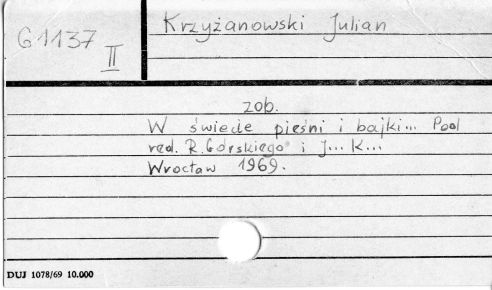 G 1137 II
Krzyżanowski Julian
zob.
W świecie pieśni i bajki... Pod
red. R. Górskiego i J... K...
Wrocław 1969.
DUJ 1078/69 10.000